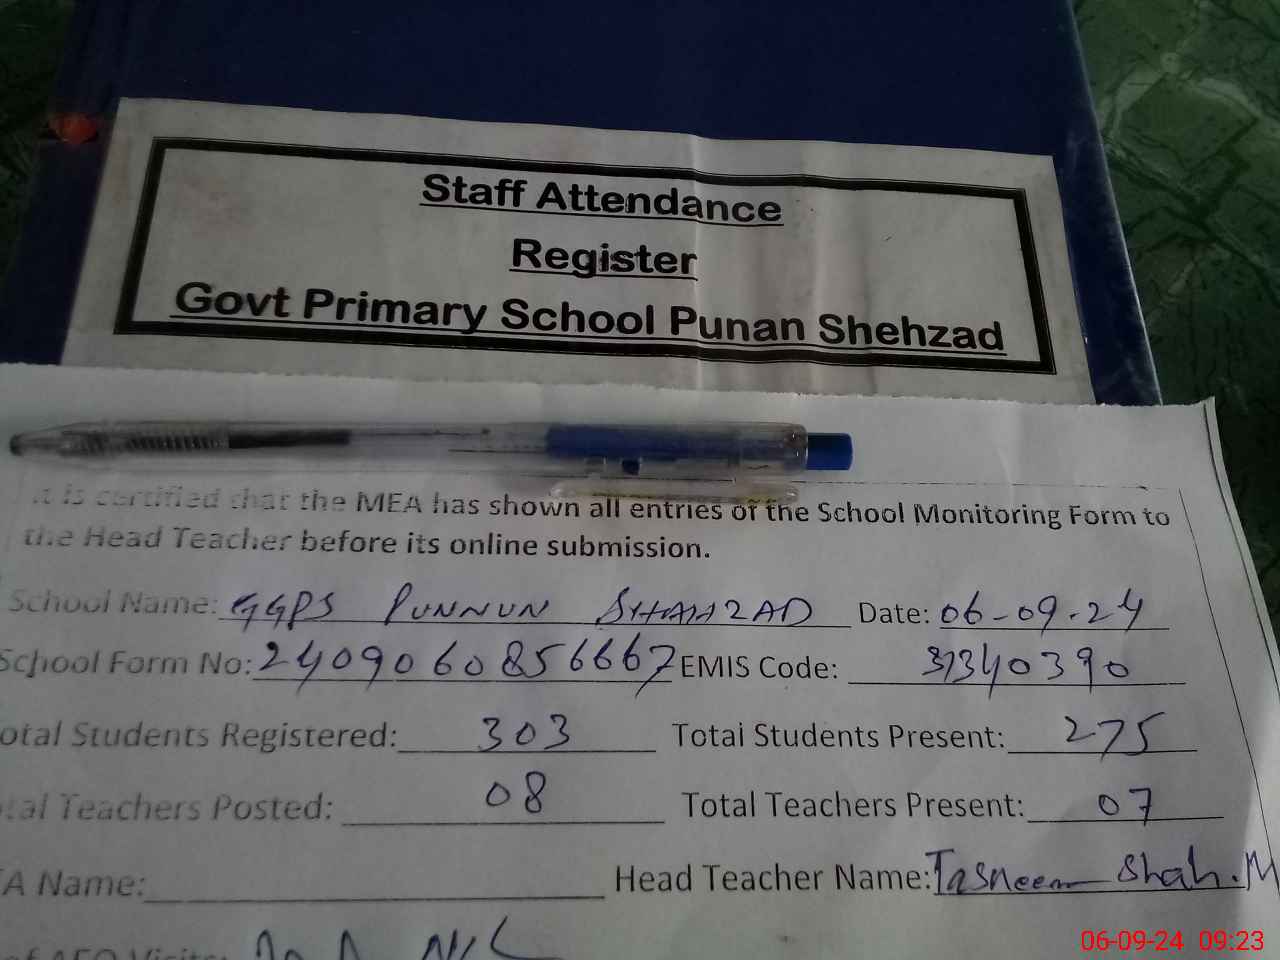 Staff Attendance
Register
Govt Primary School Punan Shehzad
It is certified that the MEA has shown all entries of the School Monitoring Form to
the Head Teacher before its online submission.
School Name: GGPS PUNNUN SHAHZAD Date: 06-09-24
School Form No: 2409060856667 EMIS Code: 31340390
otal Students Registered: 303 Total Students Present: 275
tal Teachers Posted: 08 Total Teachers Present: 07
A Name: Head Teacher Name: Tasneem Shah.M
of AEO Visits:
06-09-24 09:23